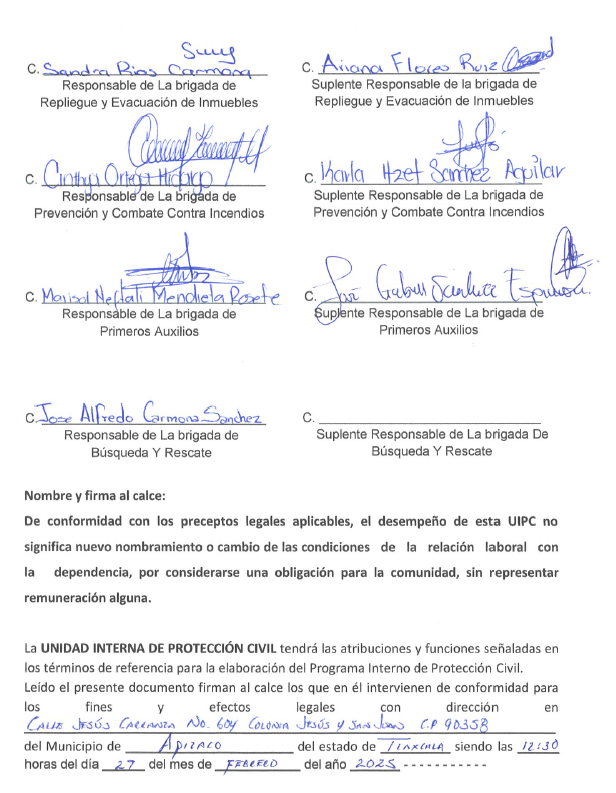 C. Sandra Rios Carmona
Responsable de La brigada de
Repliegue y Evacuación de Inmuebles
C. Ariana Flores Ruiz
Suplente Responsable de la brigada de
Repliegue y Evacuación de Inmuebles
C. Cinthya Ortega Hidalgo
Responsable de La brigada de
Prevención y Combate Contra Incendios
C. Karla Itzel Sanchez Aguilar
Suplente Responsable de La brigada de
Prevención y Combate Contra Incendios
C. Marisol Neftali Mendieta Rosete
Responsable de La brigada de
Primeros Auxilios
C. José Gabriel Sánchez Espinosa.
Suplente Responsable de La brigada de
Primeros Auxilios
C. Jose Alfredo Carmona Sanchez
Responsable de La brigada de
Búsqueda Y Rescate
C.
Suplente Responsable de La brigada De
Búsqueda Y Rescate
Nombre y firma al calce:
De conformidad con los preceptos legales aplicables, el desempeño de esta UIPC no
significa nuevo nombramiento o cambio de las condiciones de la relación laboral con
la dependencia, por considerarse una obligación para la comunidad, sin representar
remuneración alguna.
La UNIDAD INTERNA DE PROTECCIÓN CIVIL tendrá las atribuciones y funciones señaladas en
los términos de referencia para la elaboración del Programa Interno de Protección Civil.
Leído el presente documento firman al calce los que en él intervienen de conformidad para
los fines y efectos legales con dirección en
CALLE JESÚS CARRANZA No. 604 COLONIA JESÚS Y SAN JUAN C.P 90358
del Municipio de APIZACO del estado de TLAXCALA siendo las 12:30
horas del día 27 del mes de FEBRERO del año 2025 - - - - - - - - - - -